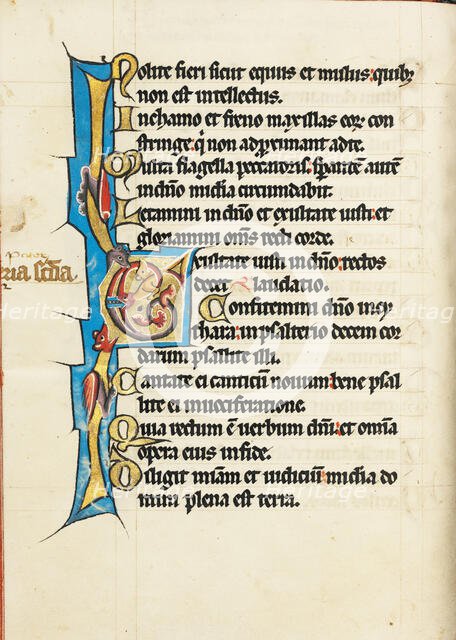 Nolite fieri sicut equus et mulus: quibꝫ
non est intellectus.
In chamo et freno maxillas eoꝝ con
stringe: qͥ non adproximant ad te.
Multa flagella peccatoris: sꝑantem autē
in dn̄o mīcdia circumdabit.
Letamini in dn̄o et exultate iusti: et
gloriamini om̄s recti corde.
Exultate iusti in dn̄o: rectos
decet laudatio.
Confitemini dn̄o in cy
thara: in psalterio decem cor
darum psallite illi.
Cantate ei canticum novum: bene psal
lite ei in vociferatione.
Quia rectum ē verbum dn̄i: et omnia
opera eius in fide.
Diligit mīam et iudiciū: mīcdia do
mini plena est terra.
Heritage
Heritage
Heritage
Heritage
Heritage
Heritage